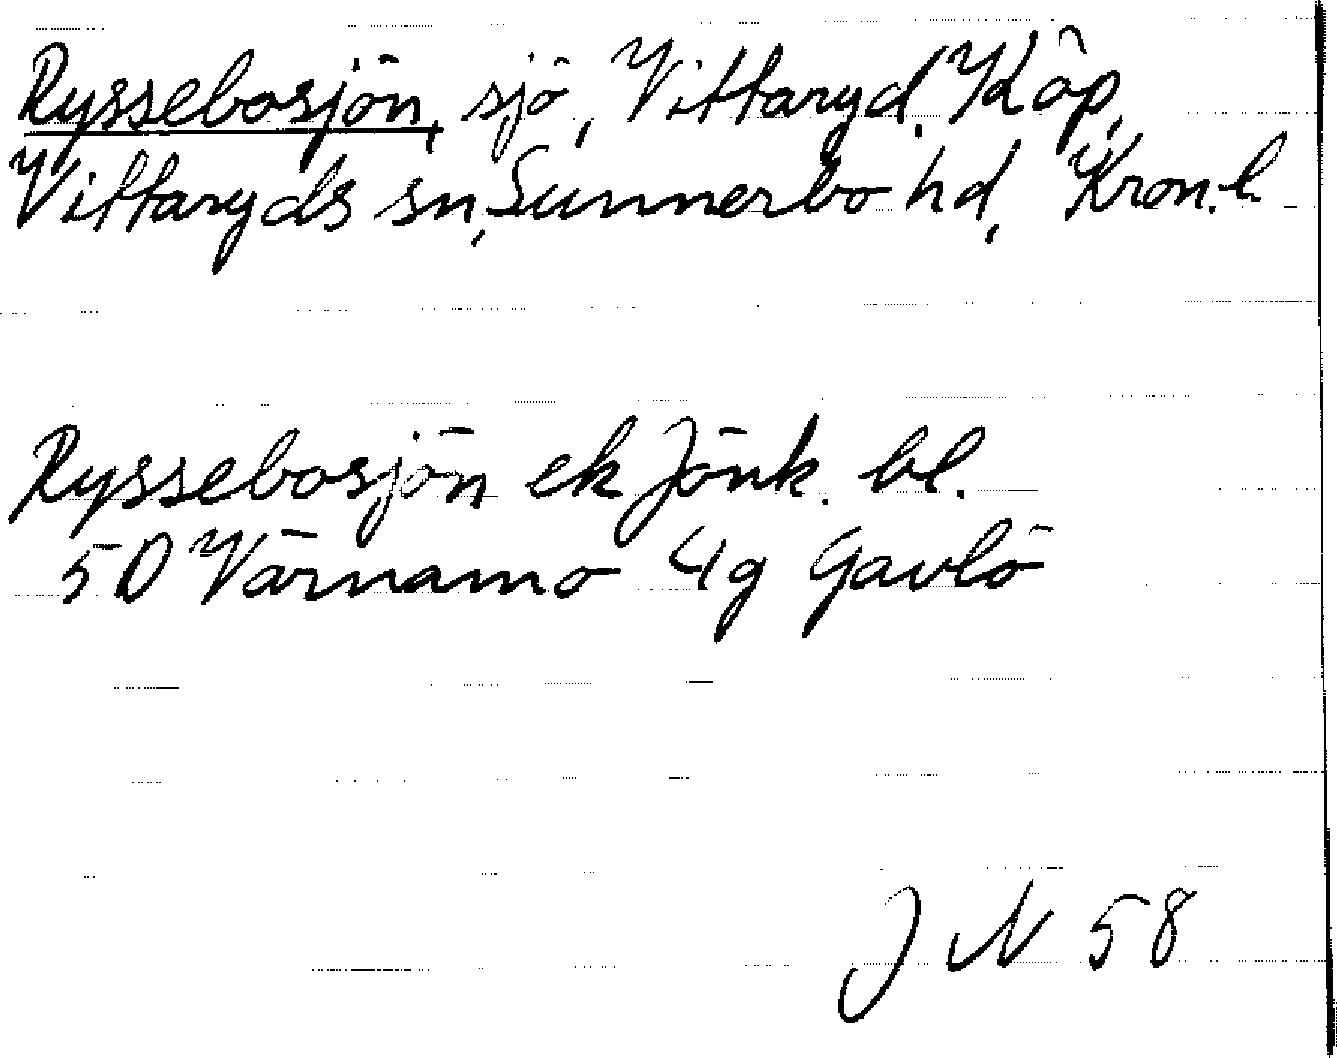 Ryssebosjön, sjö, Vittaryd, Köp,
Vittaryds sn, Sunnerbo hd, Kron. l.
Ryssebosjön ek Jönk. bl.
5D Värnamo 4g Gavlö
J N 58